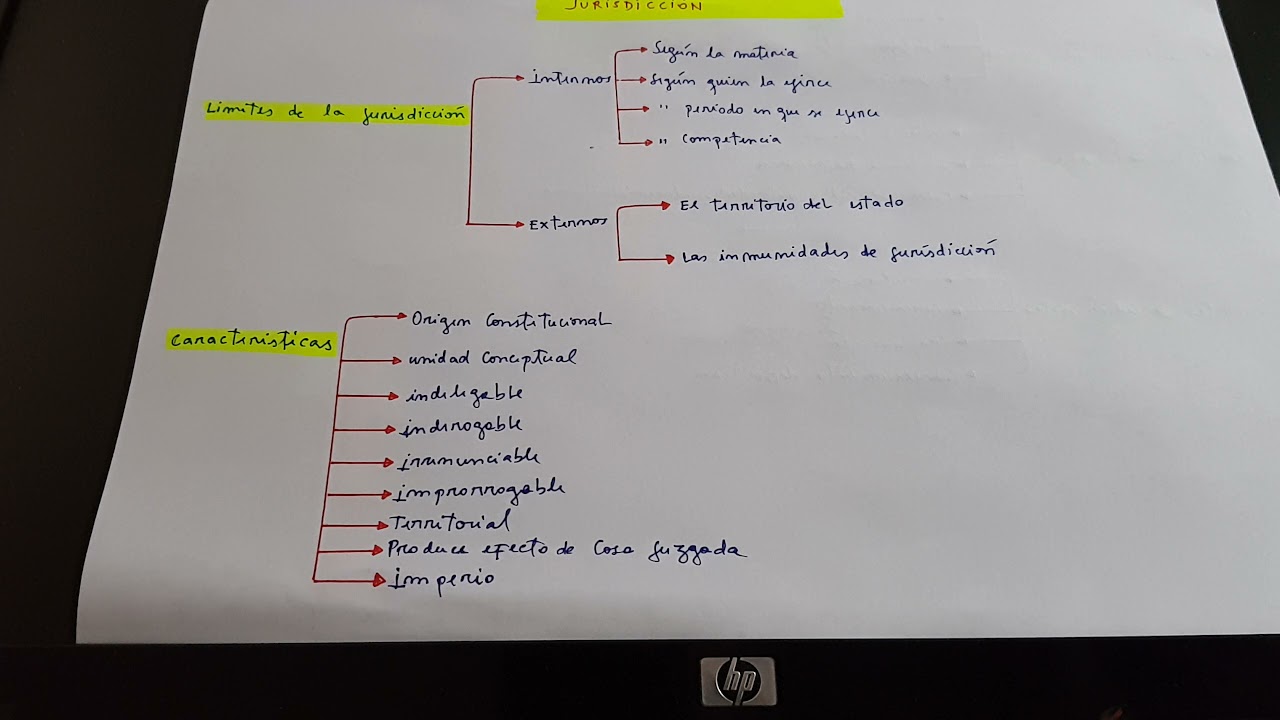 JURISDICCION
Limites de la jurisdicción
internos
Según la materia
Según quien la ejerce
" periodo en que se ejerce
" competencia
Externos
El territorio del estado
Las inmunidades de jurisdicción
Caracteristicas
Origen Constitucional
unidad conceptual
indelegable
inderogable
irrenunciable
improrrogable
Territorial
Produce efecto de Cosa Juzgada
imperio
hp